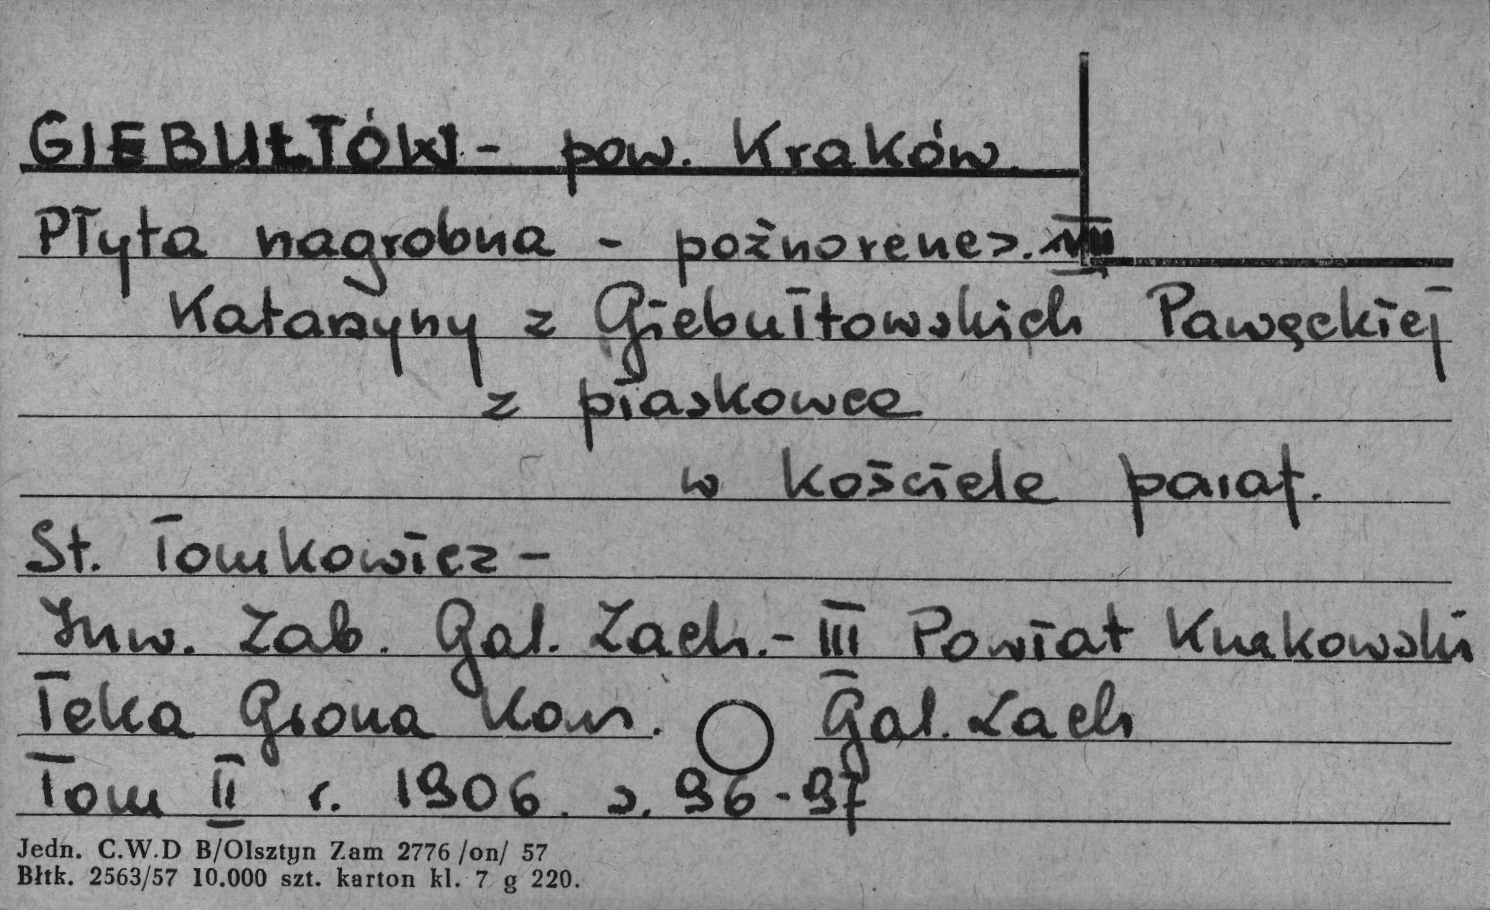 GIEBUŁTÓW - pow. Kraków.
Płyta nagrobna - poźnorenes.
Katarzyny z Giebułtowskich Pawęckiej
z piaskowca
w kościele paraf.
St. Tomkowicz -
Inw. Zab. Gal. Zach. - III Powiat Krakowski
Teka Grona Kons. Gal. Zach
Tom II r. 1906. s. 96-97
Jedn. C.W.D B/Olsztyn Zam 2776 /on/ 57
Błtk. 2563/57 10.000 szt. karton kl. 7 g 220.